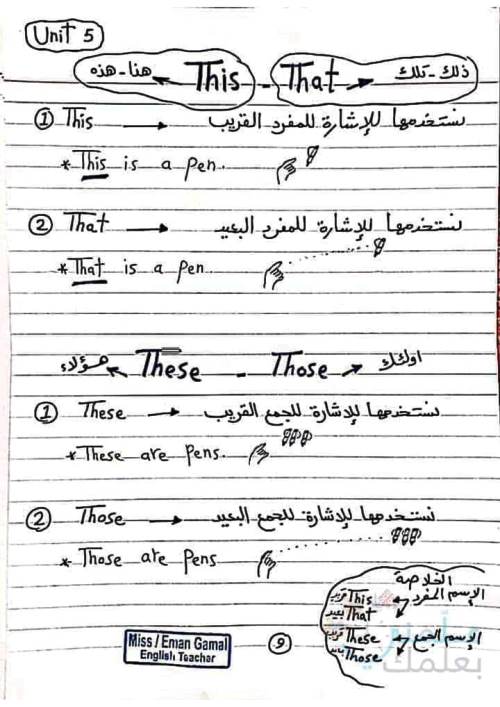 Unit 5
هذا - هذه This - That ذلك - تلك
① This → نستخدمها للإشارة للمفرد القريب
* This is a pen.
② That → نستخدمها للإشارة للمفرد البعيد
* That is a pen.
هؤلاء These - Those اولئك
① These → نستخدمها للإشارة للجمع القريب
* These are pens.
② Those → نستخدمها للإشارة للجمع البعيد
* Those are pens
الخلاصة
الإسم المفرد This قريب
That بعيد
الإسم الجمع These قريب
Those بعيد
Miss / Eman Gamal
English Teacher
9
بعلمك